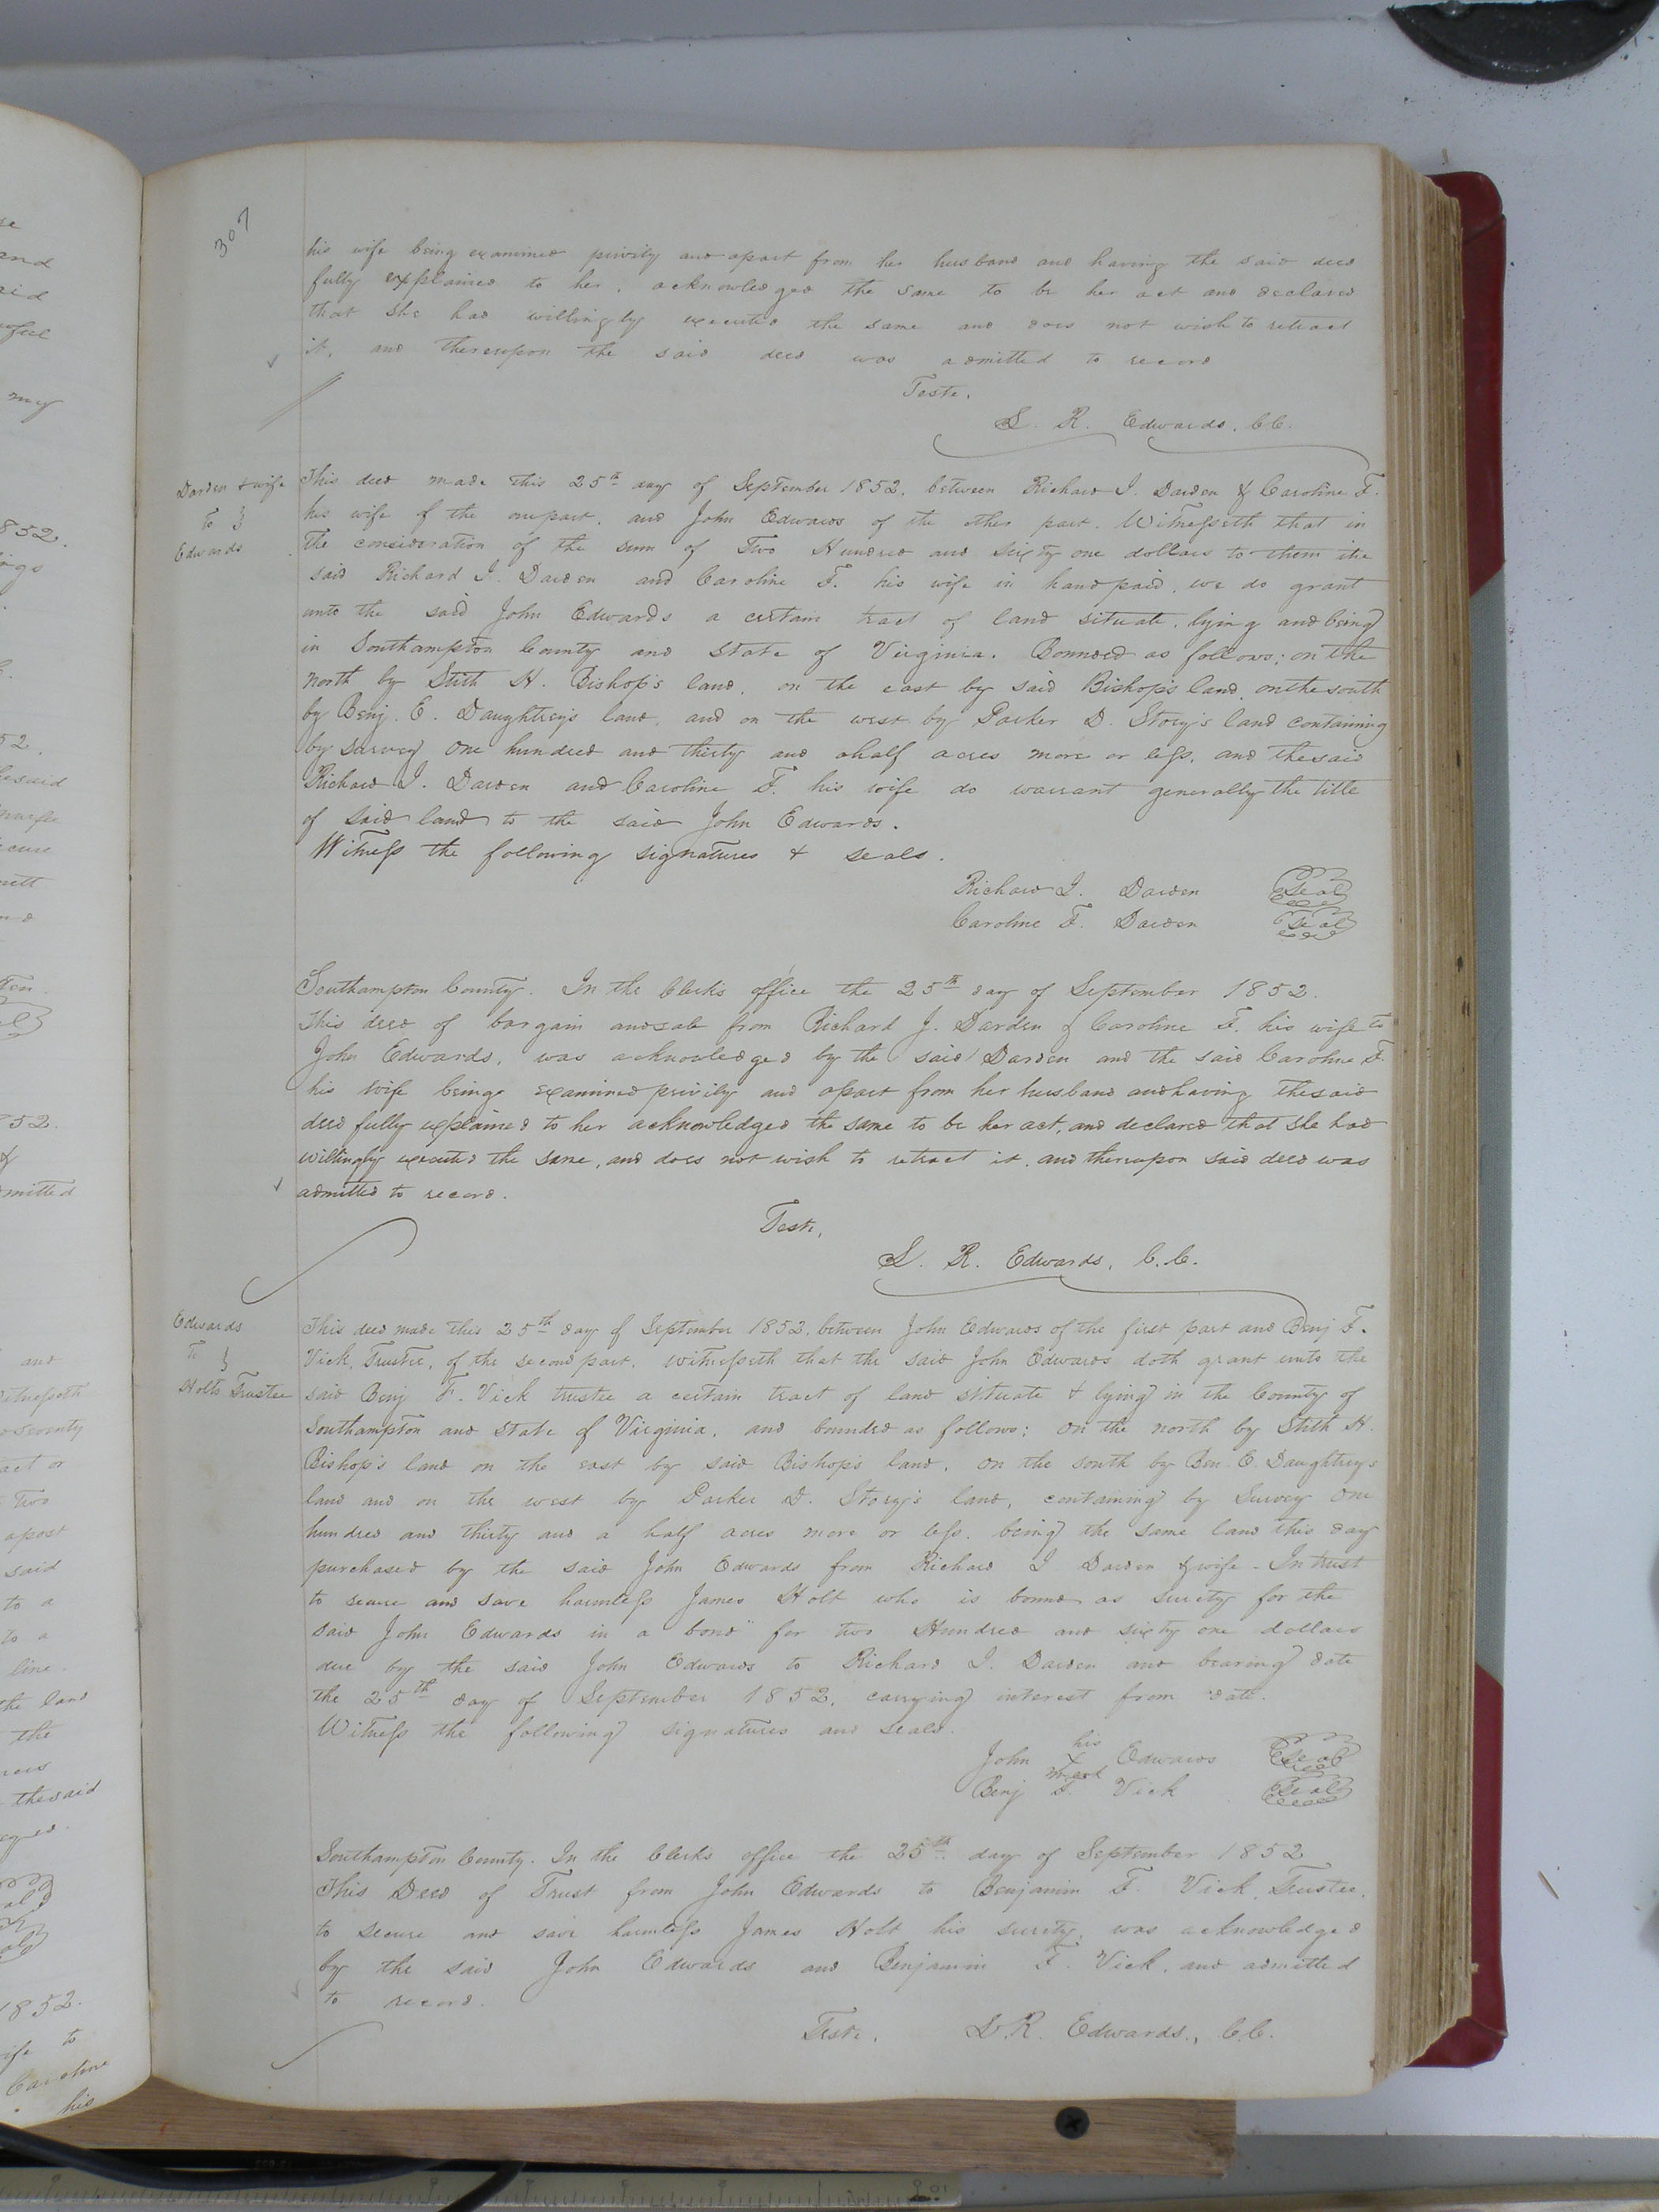 307
his wife being examined privily and apart from her husband and having the said deed
fully explained to her, acknowledged the same to be her act and declared
that she had willingly executed the same and does not wish to retract
it, and thereupon the said deed was admitted to record
Teste,
L. R. Edwards, C.C.
Darden & wife
To
Edwards
This deed made this 25th day of September 1852, between Richard J. Darden & Caroline F.
his wife of the one part, and John Edwards of the other part. Witnesseth that in
the consideration of the sum of Two Hundred and sixty one dollars to them the
said Richard J. Darden and Caroline F. his wife in hand paid, we do grant
unto the said John Edwards a certain tract of land situate, lying and being
in Southampton County and State of Virginia. Bounded as follows; on the
north by Stith H. Bishop's land, on the east by said Bishop's land, on the south
by Benj. E. Daughtrey's land, and on the west by Parker D. Story's land containing
by survey one hundred and thirty and a half acres more or less, and the said
Richard J. Darden and Caroline F. his wife do warrant generally the title
of said land to the said John Edwards.
Witness the following signatures & seals.
Richard J. Darden Seal
Caroline F. Darden Seal
Southampton County. In the Clerk's office the 25th day of September 1852.
This deed of bargain and sale from Richard J. Darden & Caroline F. his wife to
John Edwards, was acknowledged by the said Darden and the said Caroline F.
his wife being examined privily and apart from her husband and having the said
deed fully explained to her acknowledged the same to be her act, and declared that she had
willingly executed the same, and does not wish to retract it, and thereupon said deed was
admitted to record.
Teste,
L. R. Edwards, C.C.
Edwards
To
Holts Trustee
This deed made this 25th day of September 1852, between John Edwards of the first part and Benj F.
Vick, Trustee, of the second part, witnesseth that the said John Edwards doth grant unto the
said Benj F. Vick trustee a certain tract of land situate & lying in the County of
Southampton and State of Virginia, and bounded as follows; On the north by Stith H.
Bishop's land on the east by said Bishop's land, on the south by Ben. E. Daughtrey's
land and on the west by Parker D. Story's land, containing by Survey One
hundred and thirty and a half acres more or less, being the same land this day
purchased by the said John Edwards from Richard J Darden & wife - In trust
to secure and save harmless James Holt who is bound as surety for the
said John Edwards in a bond for two Hundred and sixty one dollars
due by the said John Edwards to Richard J. Darden and bearing date
the 25th day of September 1852, carrying interest from date.
Witness the following signatures and seals.
his
John X Edwards Seal
mark
Benj F. Vick Seal
Southampton County. In the Clerks office the 25th day of September 1852
This Deed of Trust from John Edwards to Benjamin F. Vick, Trustee,
to secure and save harmless James Holt his surety, was acknowledged
by the said John Edwards and Benjamin F. Vick, and admitted
to record.
Teste, L. R. Edwards, C.C.